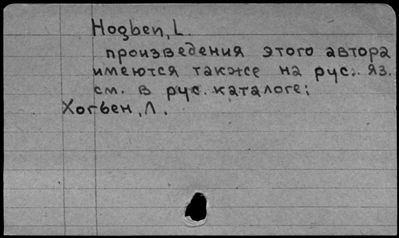 Hogben, L.
произведения этого автора
имеются также на рус. яз.
см. в рус. каталоге:
Хогбен, Л.